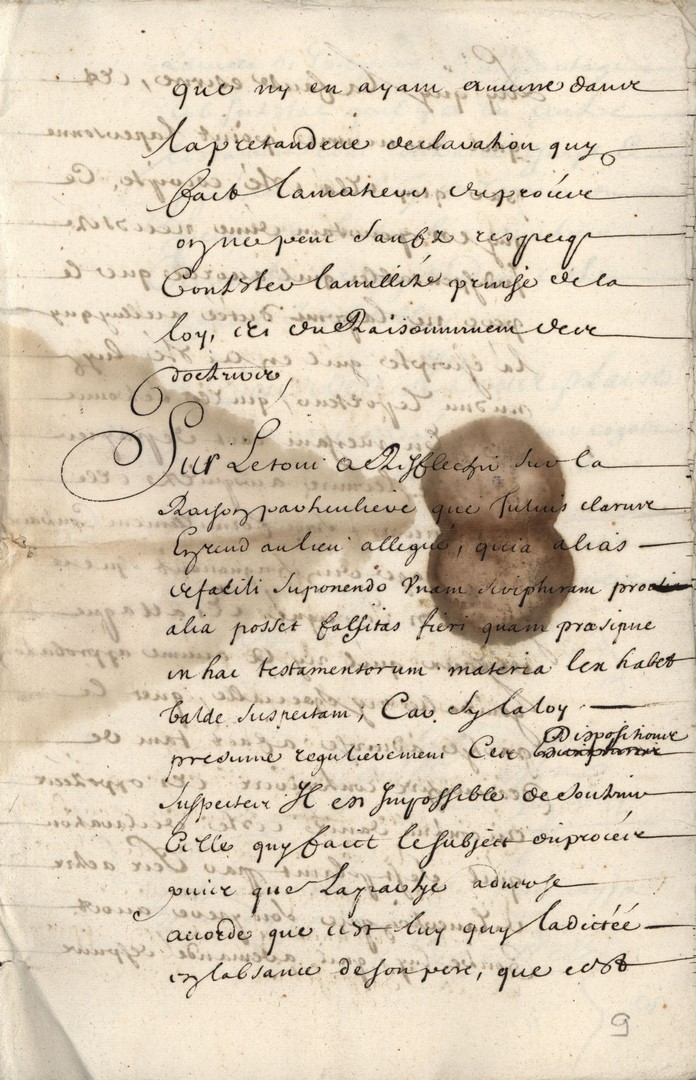 que ny en ayant aucune dans
la pretandeue declaration quy
faict la matiere du procéz
on ne peut sans
Contester la nullité prinse de la
loy, et du Raisonnement des
docteurs,
Sur Le tout a Refflechir sur la
Raison particuliere que Julius clarus
En rend au lieu allegué, quia alias
de facili suponendo Vnam scripturam pro
alia posset falsitas fieri quam præsipue
in hac testamentorum materia lex habet
valde suspectam, Car sy la loy
presume regulierement Ces Dispositions
suspectes Il est Impossible de soutenir
Celle quy faict le subject du procéz
puis que La partye adverse
acorde que c'est luy quy la dictée
en labsance de son pere, que c'est
9